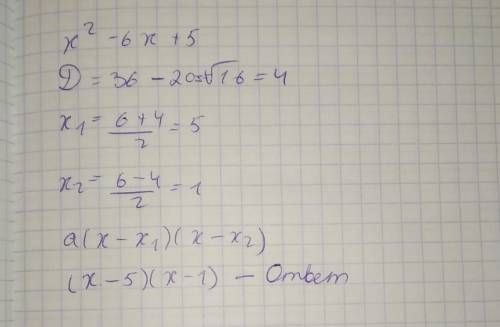 x² - 6x + 5
D = 36 - 20 = √16 = 4
x₁ = (6 + 4)/2 = 5
x₂ = (6 - 4)/2 = 1
a(x - x₁)(x - x₂)
(x - 5)(x - 1) - Ответ